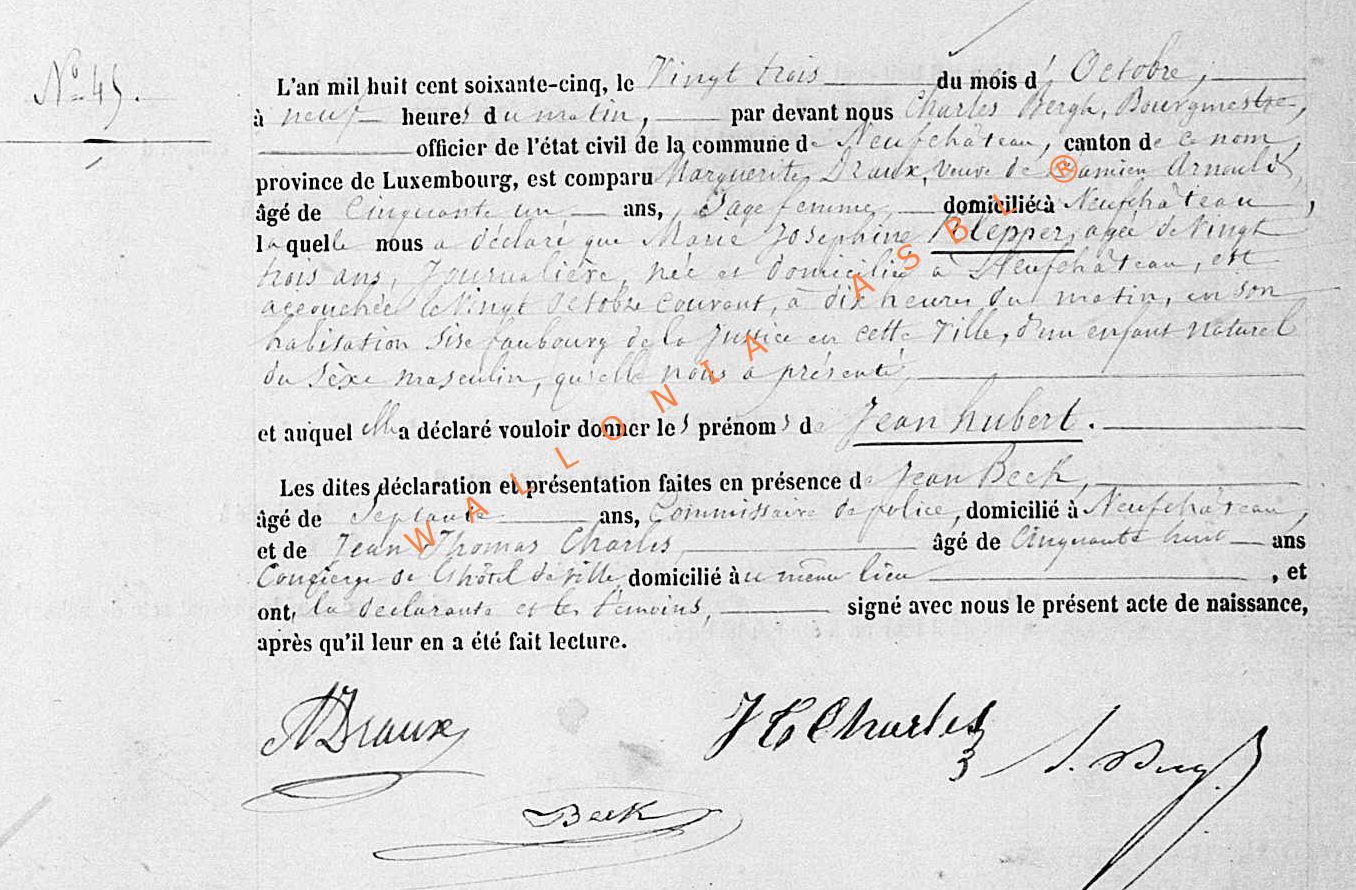 N° 45.
L'an mil huit cent soixante-cinq, le Vingt trois du mois d'Octobre,
à neuf heures du matin, par devant nous Charles Bergh, Bourgmestre,
officier de l'état civil de la commune de Neufchâteau, canton de ce nom,
province de Luxembourg, est comparu Marguerite Draux, veuve de Damien Arnould,
âgé de Cinquante un ans, Sage femme, domicilié à Neufchâteau,
laquelle nous a déclaré que Marie Josephine Klepper, agée de Vingt
trois ans, Journalière, née et domiciliée à Neufchâteau, est
accouchée le Vingt Octobre courant, à dix heures du matin, en son
habitation sise faubourg de la Justice en cette Ville, d'un enfant naturel
du sèxe masculin, qu'elle nous a présenté,
et auquel elle a déclaré vouloir donner les prénoms de Jean hubert.
Les dites déclaration et présentation faites en présence de Jean Beck,
âgé de Septante ans, Commissaire de police, domicilié à Neufchâteau,
et de Jean Thomas Charles âgé de Cinquante huit ans
Concierge de l'hôtel de ville, domicilié à u même lieu, et
ont, la déclarante et les témoins, signé avec nous le présent acte de naissance,
après qu'il leur en a été fait lecture.
MDraux
J T Charles
Beck
WALLONIA ASBL ®